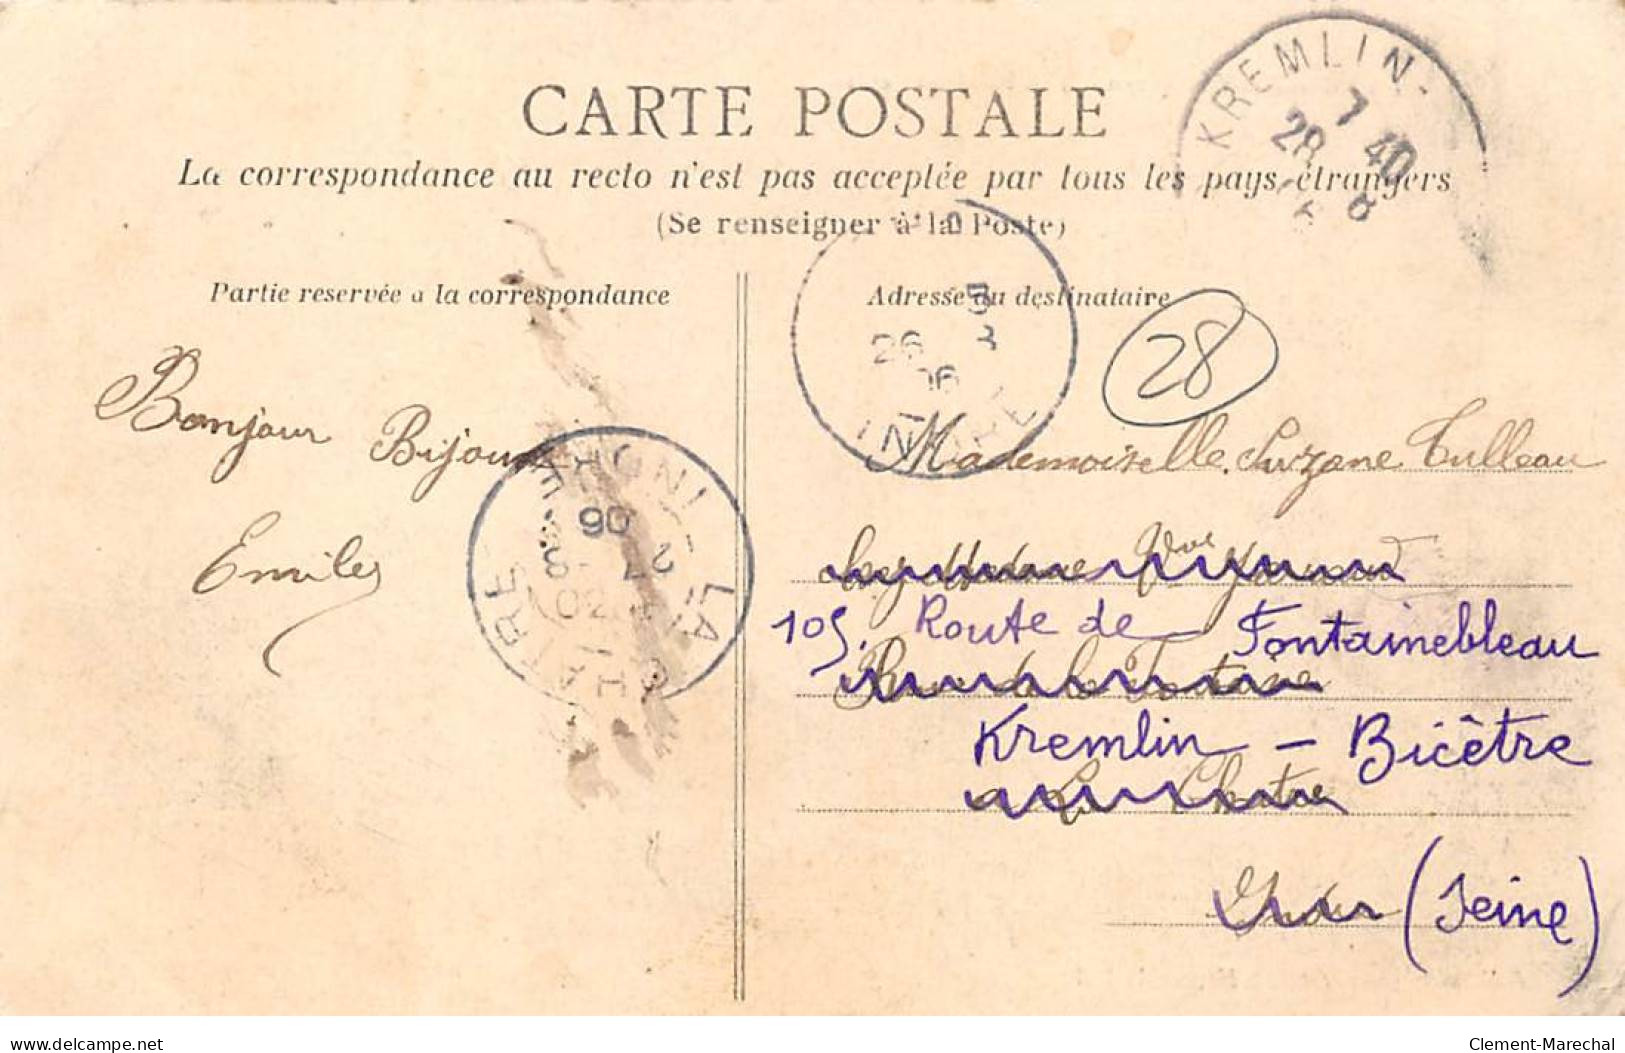 CARTE POSTALE
La correspondance au recto n'est pas acceptée par tous les pays étrangers
(Se renseigner à la Poste)
KREMLIN-
7 40
28 8
Partie reservée a la correspondance
Adresse du destinataire
26
06
INDRE
28
Bonjour Bijou
Emile
LA CHATRE
06
Mademoiselle Suzane Tulleau
chez Madame Vve
105, Route de Fontainebleau
Rue de la Fontaine
Kremlin - Bicêtre
a La Chatre
Indre (Seine)
delcampe.net
Clement-Marechal